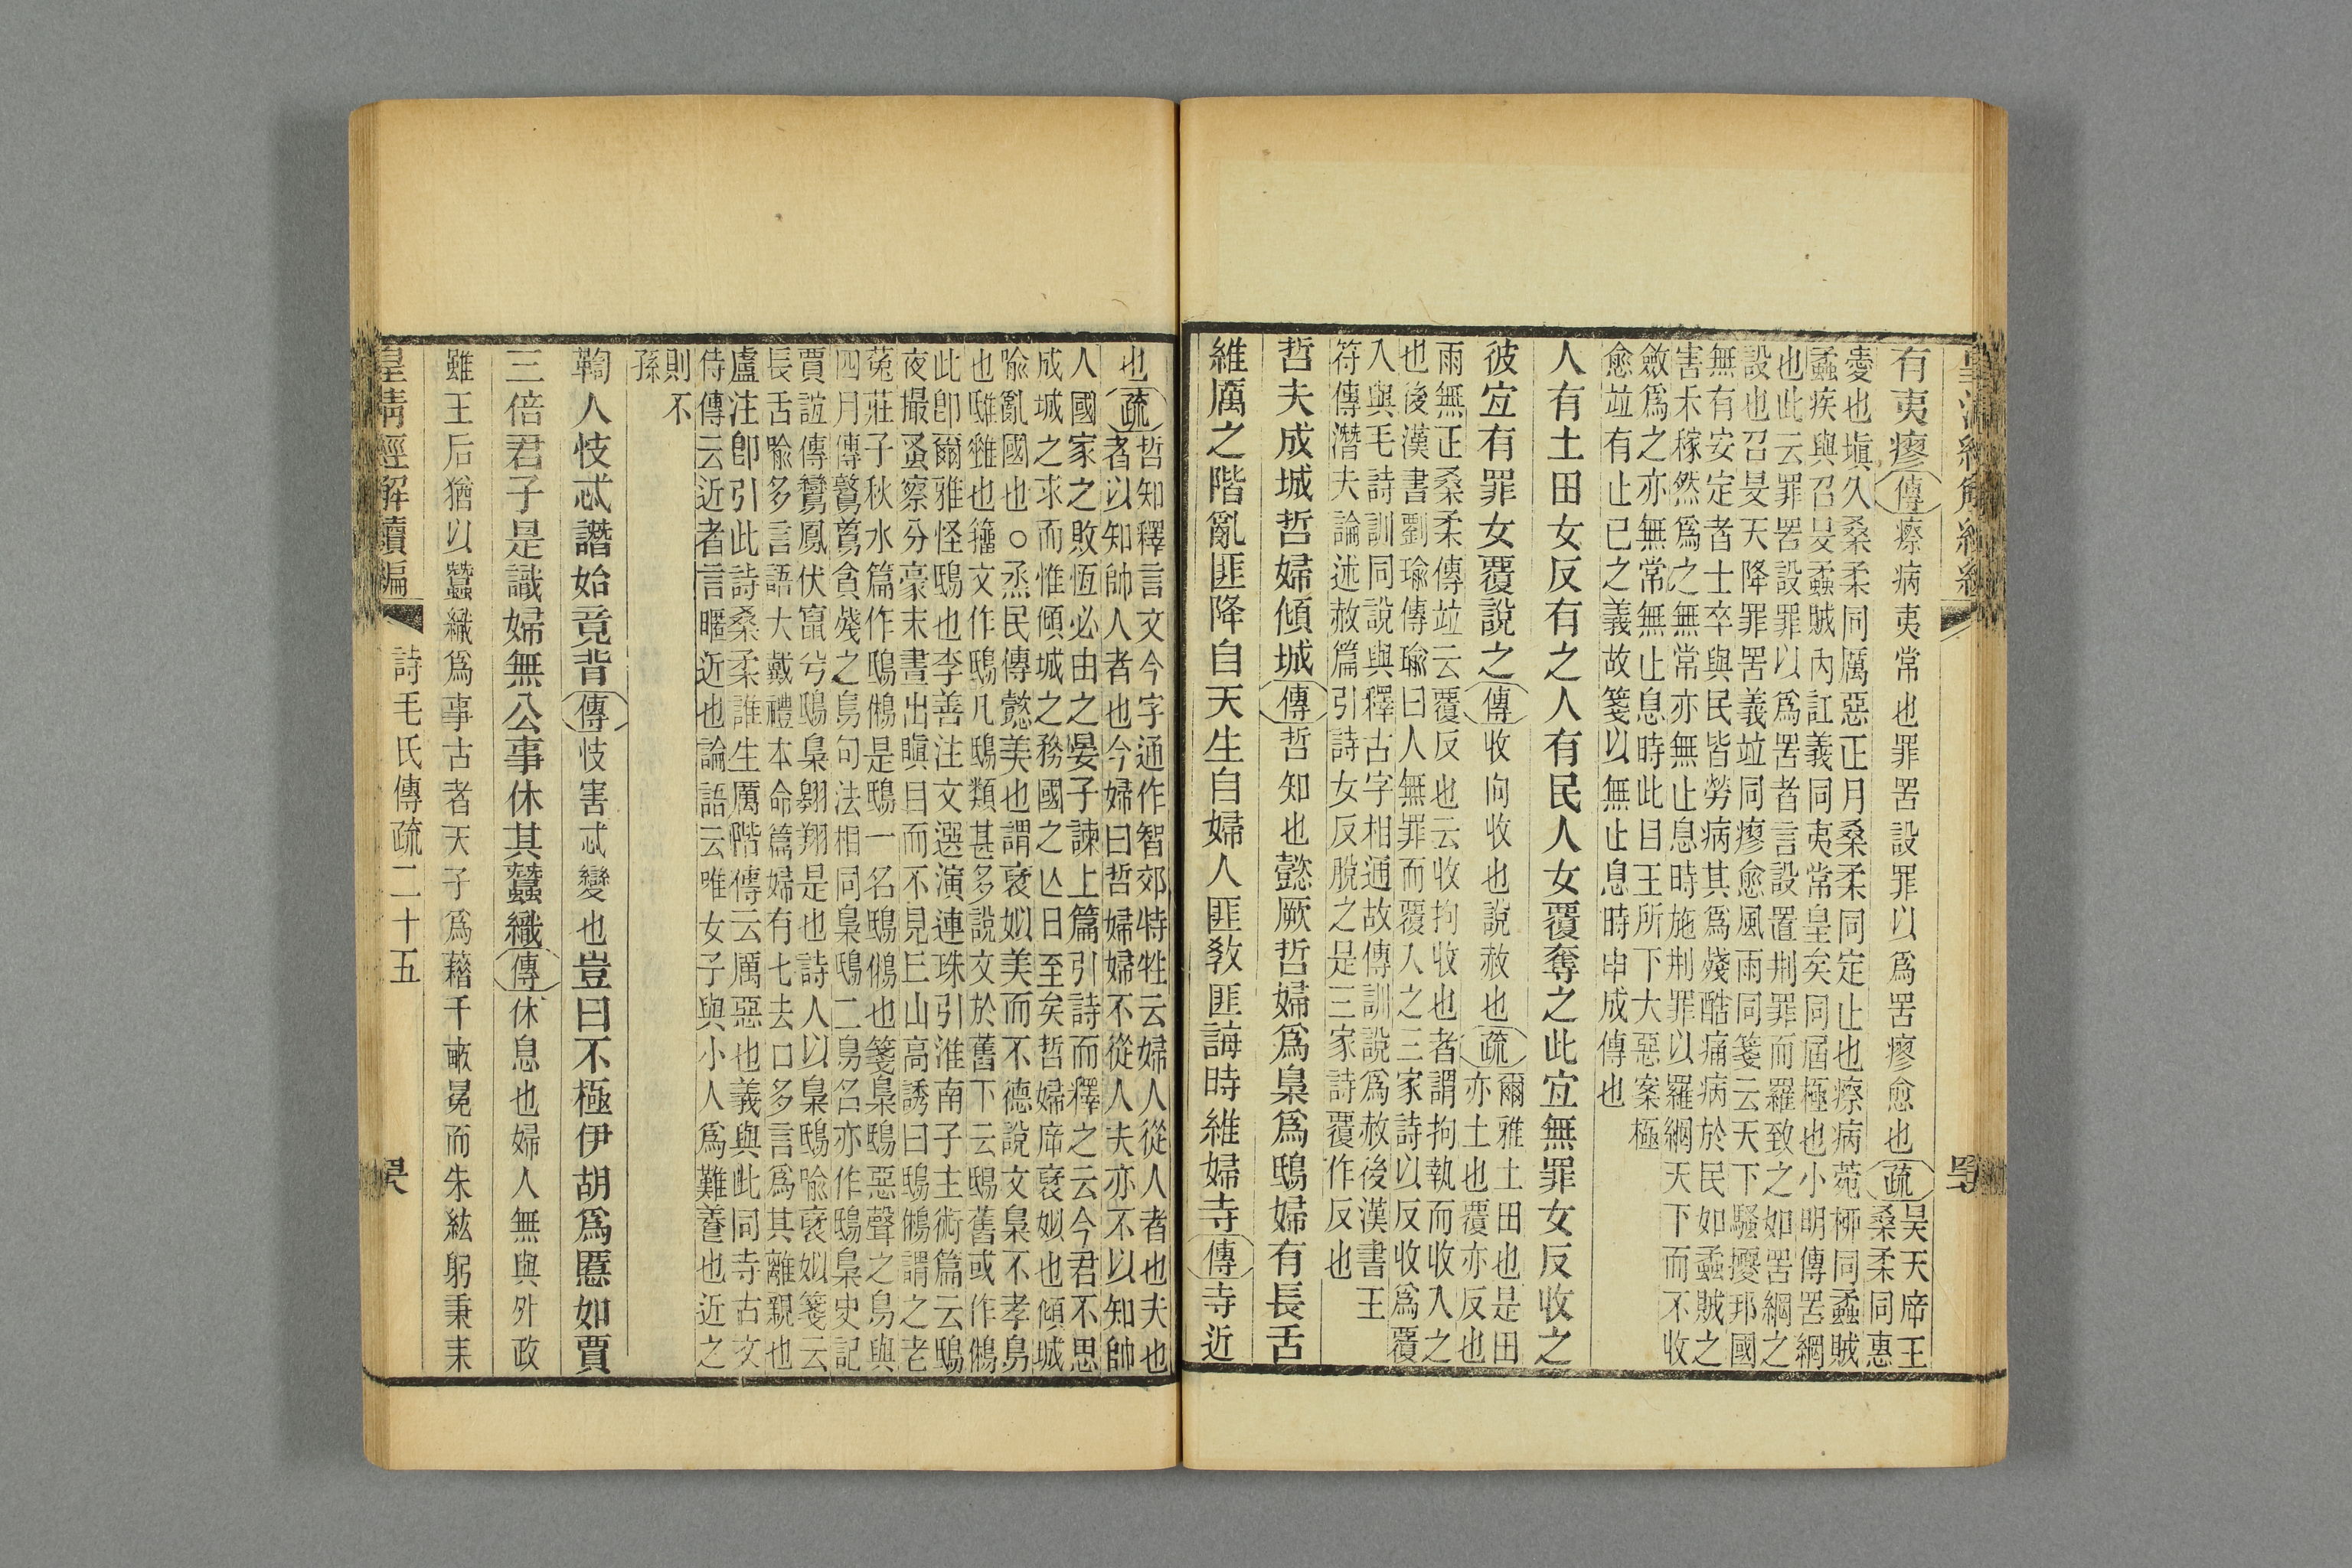 有夷瘳傳瘵病夷常也罪罟設罪以爲罟瘳愈也疏昊天席王
桑柔同惠
憂也塡久桑柔同厲惡正月桑柔同定止也瘵病菀柳同蟊賊
蟊疾與召旻蟊賊內訌義同夷常皇矣同屆極也小明傳罟綱
也此云罪罟設罪以爲罟者言設置刑罪而羅致之如罟綱之
設也召旻天降罪罟義竝同瘳愈風雨同箋云天下騷擾邦國
無有安定者士卒與民皆勞病其爲殘酷痛病於民如蟊賊之
害禾稼然爲之無常亦無止息時施刑罪以羅網天下而不收
斂爲之亦無常無止息時此目王所下大惡案極
愈竝有止已之義故箋以無止息時申成傳也
人有土田女反有之人有民人女覆奪之此宜無罪女反收之
彼宜有罪女覆說之傳收向收也說赦也疏爾雅土田也是田
亦土也覆亦反也
雨無正桑柔傳竝云覆反也云收拘收也者謂拘執而收入之
也後漢書劉瑜傳瑜曰人無罪而覆入之三家詩以反收爲覆
入與毛詩訓同說與釋古字相通故傳訓說爲赦後漢書王
符傳潛夫論述赦篇引詩女反脫之是三家詩覆作反也
哲夫成城哲婦傾城傳哲知也懿厥哲婦爲梟爲鴟婦有長舌
維厲之階亂匪降自天生自婦人匪敎匪誨時維婦寺傳寺近
也疏哲知釋言文今字通作智郊特牲云婦人從人者也夫也
者以知帥人者也今婦曰哲婦婦不從人夫亦不以知帥
人國家之敗恆必由之晏子諫上篇引詩而釋之云今君不思
成城之求而惟傾城之務國之亡日至矣哲婦席襃姒也傾城
喩亂國也○烝民傳懿美也謂襃姒美而不德說文梟不孝鳥
也鴟雖也籒文作鴟凡鴟類甚多說文於舊下云鴟舊或作鵂
此卽爾雅怪鴟也李善注文選演連珠引淮南子主術篇云鴟
夜撮蚤察分豪末晝出瞋目而不見丘山高誘曰鴟鵂謂之老
菟莊子秋水篇作鴟鵂是鴟一名鴟鵂也箋梟鴟惡聲之鳥與
四月傳鷻鳶貪殘之鳥句法相同梟鴟二鳥名亦作鴟梟史記
賈誼傳鸞鳳伏竄兮鴟梟翱翔是也詩人以梟鴟喩襃姒箋云
長舌喩多言語大戴禮本命篇婦有七去口多言爲其離親也
盧注卽引此詩桑柔誰生厲階傳云厲惡也義與此同寺古文
侍傳云近者言暱近也論語云唯女子與小人爲難養也近之
則不
孫
鞫人忮忒譖始竟背傳忮害忒變也豈曰不極伊胡爲慝如賈
三倍君子是識婦無公事休其蠶織傳休息也婦人無與外政
雖王后猶以蠶織爲事古者天子爲藉千畝冕而朱紘躬秉耒
皇淸經解續編 詩毛氏傳疏二十五